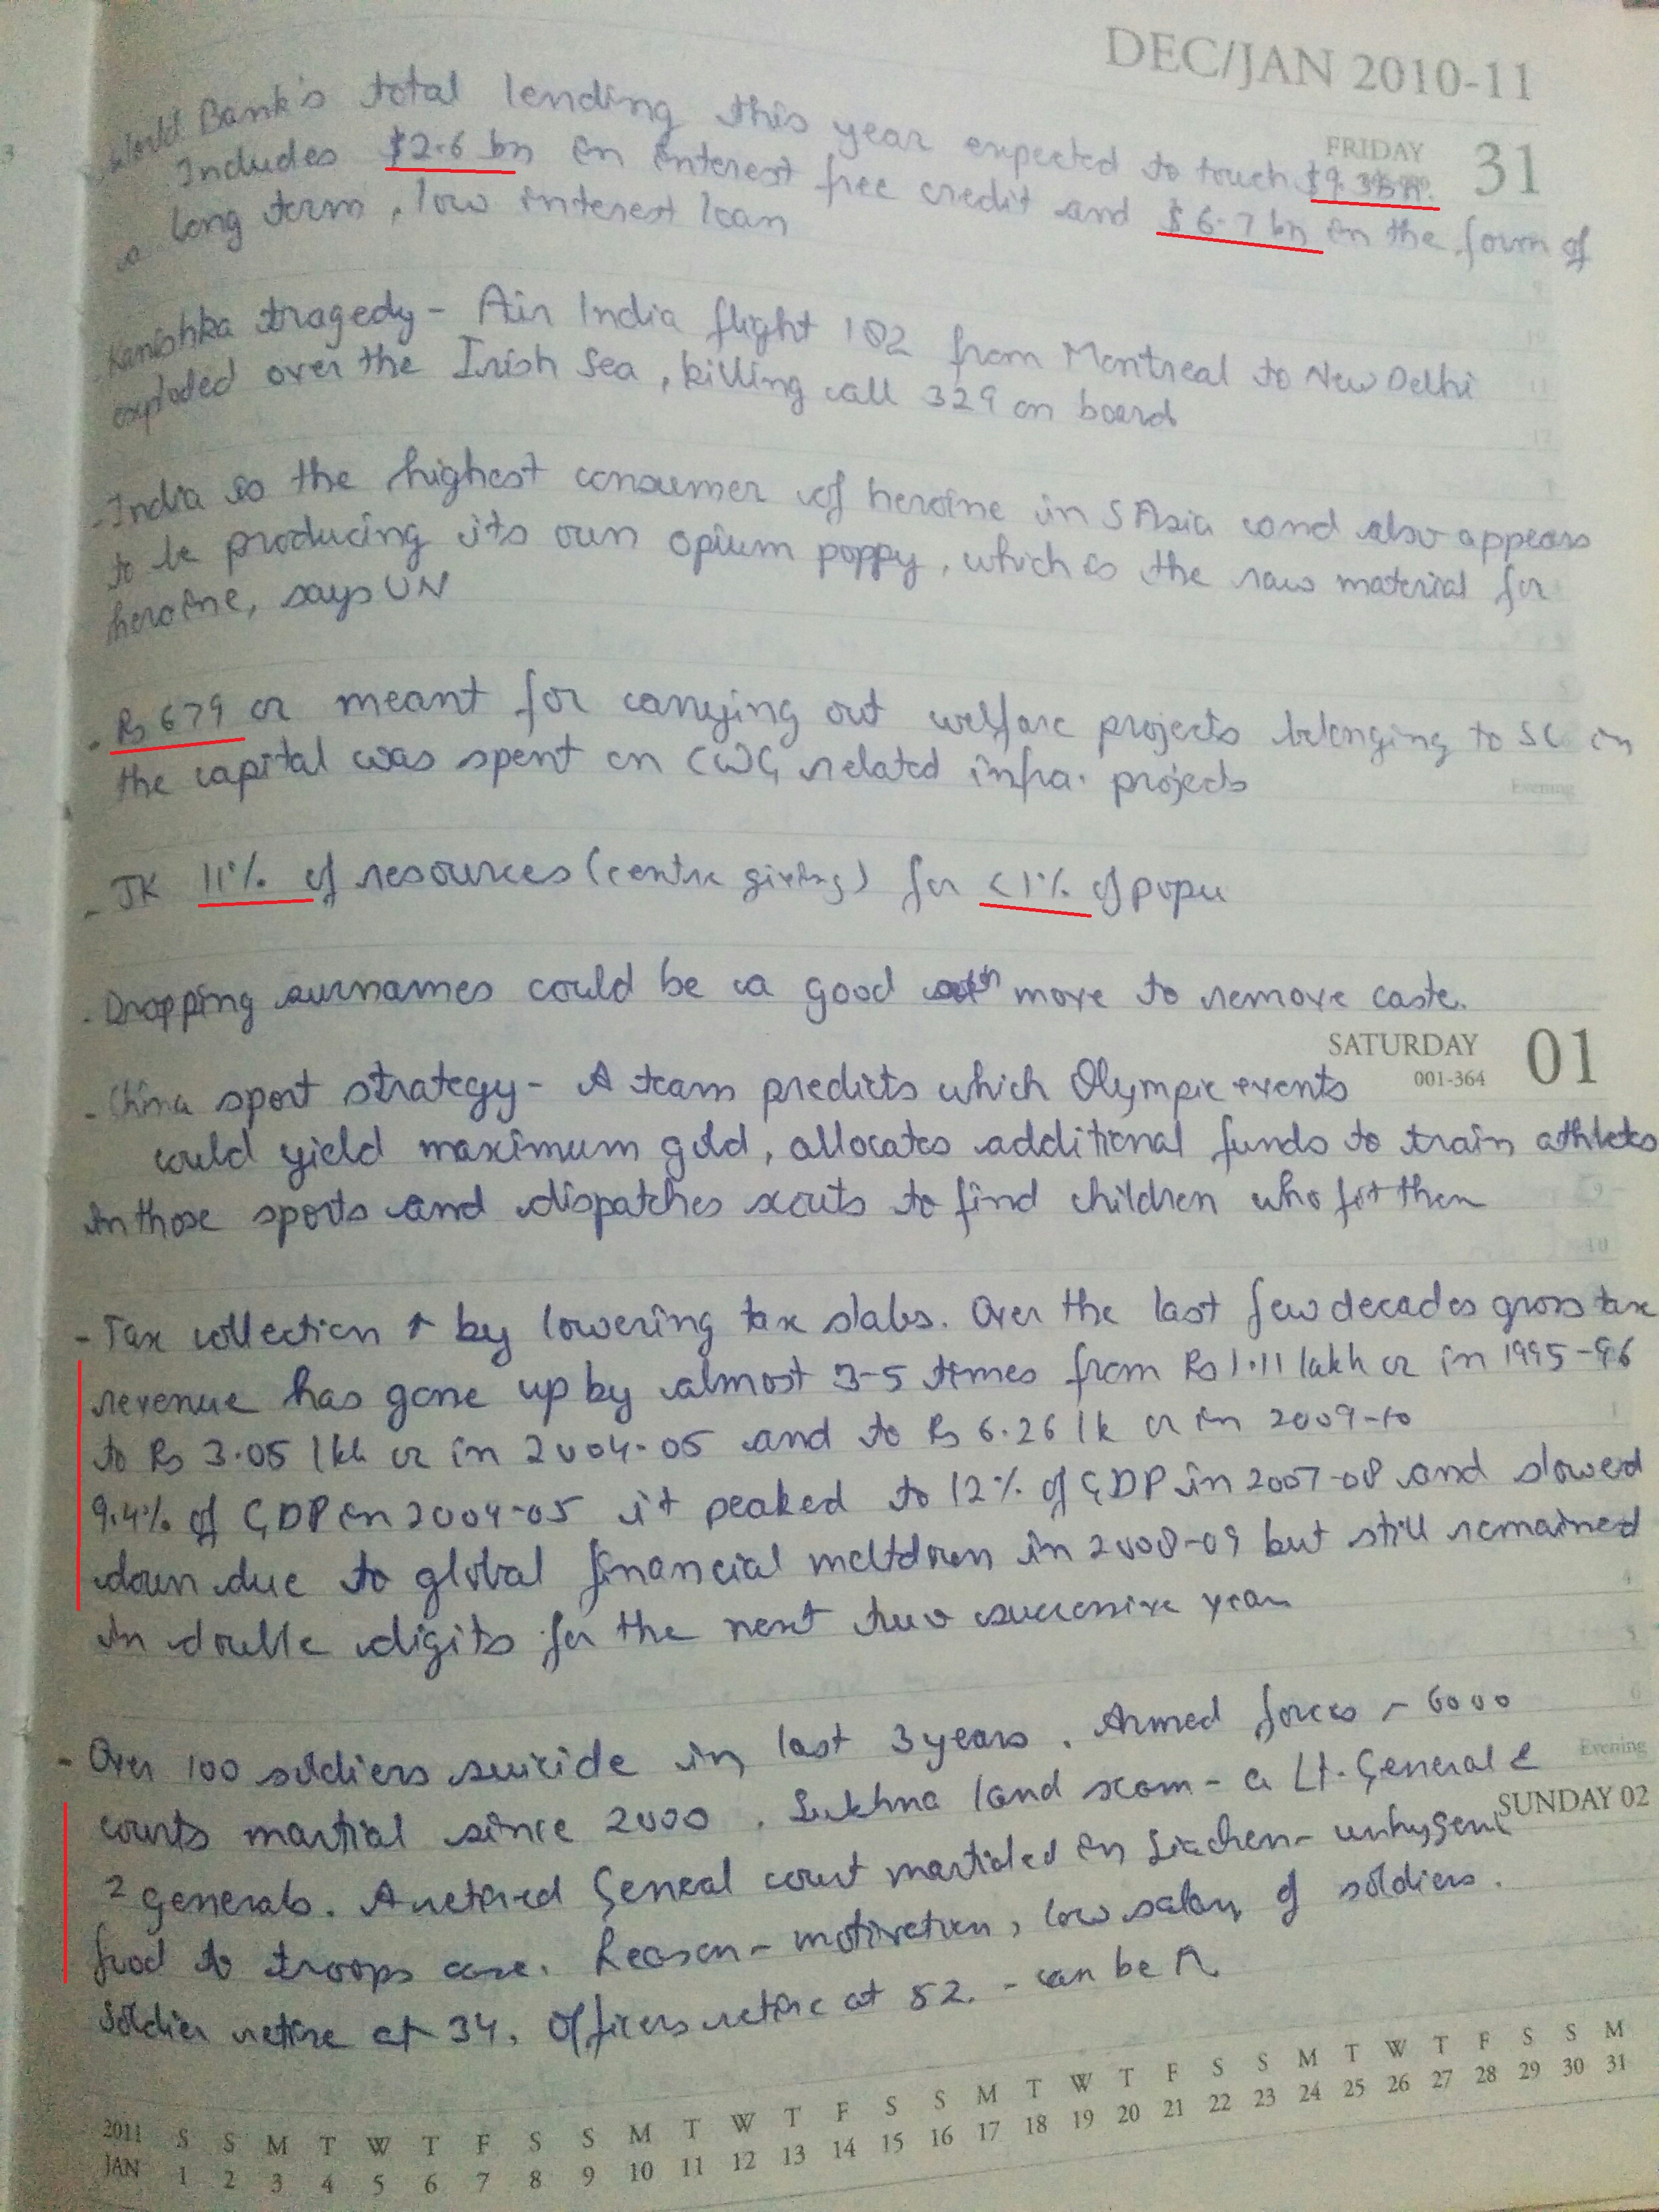 DEC/JAN 2010-11
FRIDAY 31
World Bank's total lending this year expected to touch $9.3bn.
Includes $2.6 bn in interest free credit and $6.7 bn in the form of
long term, low interest loan
Kanishka tragedy - Air India flight 182 from Montreal to New Delhi
exploded over the Irish Sea, killing all 329 on board
- India is the highest consumer of heroine in S Asia and also appears
to be producing its own opium poppy, which is the raw material for
heroine, says UN
- Rs 679 cr meant for carrying out welfare projects belonging to SC in
the capital was spent on CWG related infra. projects
Evening
- JK 11% of resources (centre giving) for <1% of popu
- Dropping surnames could be a good move to remove caste.
SATURDAY 01
001-364
- China sport strategy - A team predicts which Olympic events
could yield maximum gold, allocates additional funds to train athletes
in those sports and dispatches scouts to find children who fit them
- Tax collection ↑ by lowering tax slabs. Over the last few decades gross tax
revenue has gone up by almost 3-5 times from Rs 1.11 lakh cr in 1995-96
to Rs 3.05 lkh cr in 2004-05 and to Rs 6.26 lk cr in 2009-10
9.4% of GDP in 2004-05 it peaked to 12% of GDP in 2007-08 and slowed
down due to global financial meltdown in 2008-09 but still remained
in double digits for the next two successive year
- Over 100 soldiers suicide in last 3 years. Armed forces - 6000
Evening
courts martial since 2000. Sukhna land scam - a Lt. General &
SUNDAY 02
2 generals. A retired General court martialed in Siachen - unhygenic
food to troops case. Reason - motivation, low salary of soldiers.
Soldier retire at 34, Officers retire at 52. - can be ↑
2011 S S M T W T F S S M T W T F S S M T W T F S S M T W T F S S M
JAN 1 2 3 4 5 6 7 8 9 10 11 12 13 14 15 16 17 18 19 20 21 22 23 24 25 26 27 28 29 30 31